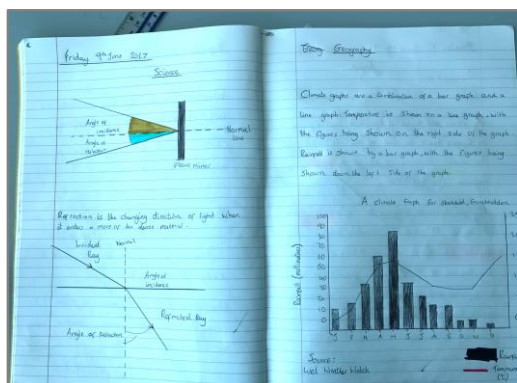 Friday 9th June 2017
Science
Angle of
incidence
Angle of
Normal
line
Plane mirror
Refraction is the changing direction of light when
it enters a more or less dense material.
Incident
Ray
Normal
Angle of
incidence
Refracted Ray
Angle of refraction
Geography
Climate graphs are a combination of a bar graph and a
line graph. Temperature is shown on a line graph, with
the figures being shown on the right side of the graph.
Rainfall is shown by a bar graph, with the figures being
shown down the left side of the graph.
A climate Graph for
Rainfall (millimetres)
100
90
80
70
60
50
40
30
20
10
0
J F M A M J J A S O N D
Source:
Weather Watch